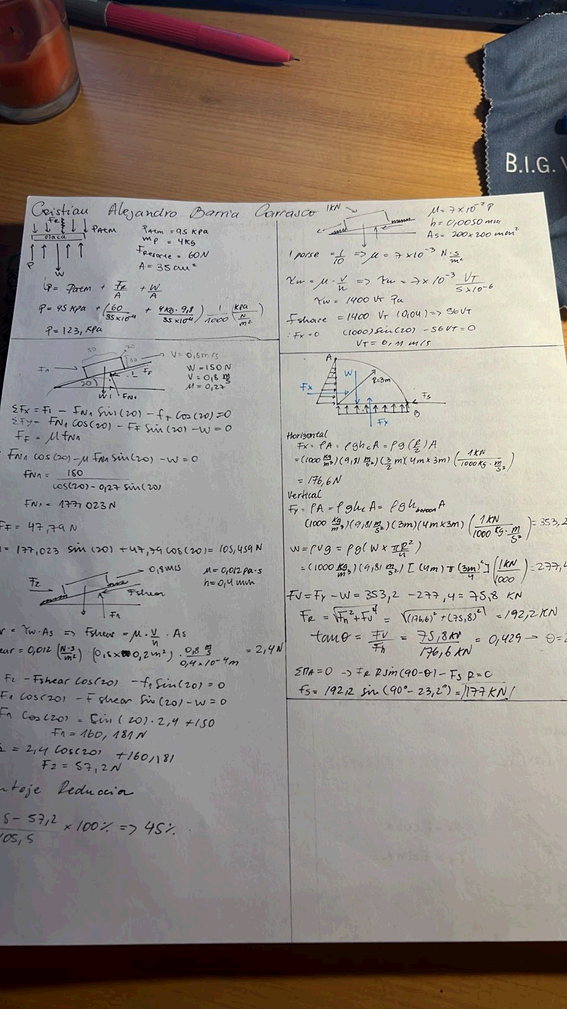 B.I.G.
Cristian Alejandro Barria Carrasco
Fe
Patm
PLACA
P
W
Patm = 95 KPa
mp = 4 Kg
Fresorte = 60N
A = 35 cm²
P = Patm + Fe/A + W/A
P = 95 KPa + (60/35x10⁻⁴ + 4KG · 9,8/35x10⁻⁴) 1/1000 (KPa / N/m²)
P = 123, KPa
V = 0,8 m/s
W = 150 N
V = 0,8 m/s
μ = 0,27
20
W
FN1
ΣFx = F1 - FN1 sin(20) - Ff cos(20) = 0
ΣFy - FN1 cos(20) - Ff sin(20) - W = 0
FF = μ FN1
FN1 cos(20) - μ FN1 sin(20) - W = 0
FN1 = 150 / cos(20) - 0,27 sin(20)
FN1 = 177,023 N
FF = 47,79 N
= 177,023 sin(20) + 47,79 cos(20) = 105,459 N
F2
0,8 m/s
Fshear
μ = 0,012 Pa·s
h = 0,4 mm
= τw · As => Fshear = μ · V/h · As
= 0,012 (N·s/m²) (0,5x0,2m²) · 0,8 m/s / 0,4x10⁻⁴ m = 2,4 N
F2 - Fshear cos(20) - f1 sin(20) = 0
F1 cos(20) - F shear sin(20) - W = 0
F1 cos(20) = sin(20) · 2,4 + 150
F1 = 160,181 N
= 2,4 cos(20) + 160,181
F2 = 57,2 N
Reduccion
5 - 57,2 / 105,5 x 100% => 45%
1KN
μ = 7x10⁻² P
h = 0,0050 mm
As = 200x200 mm²
1 poise = 1/10 => μ = 7x10⁻³ N·s/m²
τw = μ · V/h => τw = 7x10⁻³ VT / 5x10⁻⁶
τw = 1400 VT Pa
Fshare = 1400 VT (0,04) => 56VT
Fx = 0 (1000) sin(20) - 56VT = 0
VT = 6,11 m/s
A
W
Fx
R=3m
Fs
B
Fx
Horizontal
Fx = PA = ρghcA = ρg(R/2)A
= (1000 Kg/m³)(9,81 m/s²)(3/2 m)(4m x 3m)(1KN / 1000Kg · m/s²)
= 176,6 N
Vertical
Fy = PA = ρghc A = ρgh A
(1000 Kg/m³)(9,81 m/s²)(3m)(4m x 3m)(1KN / 1000 Kg · m/s²) = 353,2
W = ρVg = ρg (W x πR²/4)
= (1000 Kg/m³)(9,81 m/s²) [(4m) π (3m)²/4] (1KN / 1000) = 277,4
FV = Fy - W = 353,2 - 277,4 = 75,8 KN
FR = √Fh² + FV² = √(176,6)² + (75,8)² = 192,2 KN
tanθ = FV/Fh = 75,8 KN / 176,6 KN = 0,429 → θ = 2
ΣMA = 0 → FR R sin(90-θ) - FS R = 0
FS = 192,2 sin(90° - 23,2°) = 177 KN